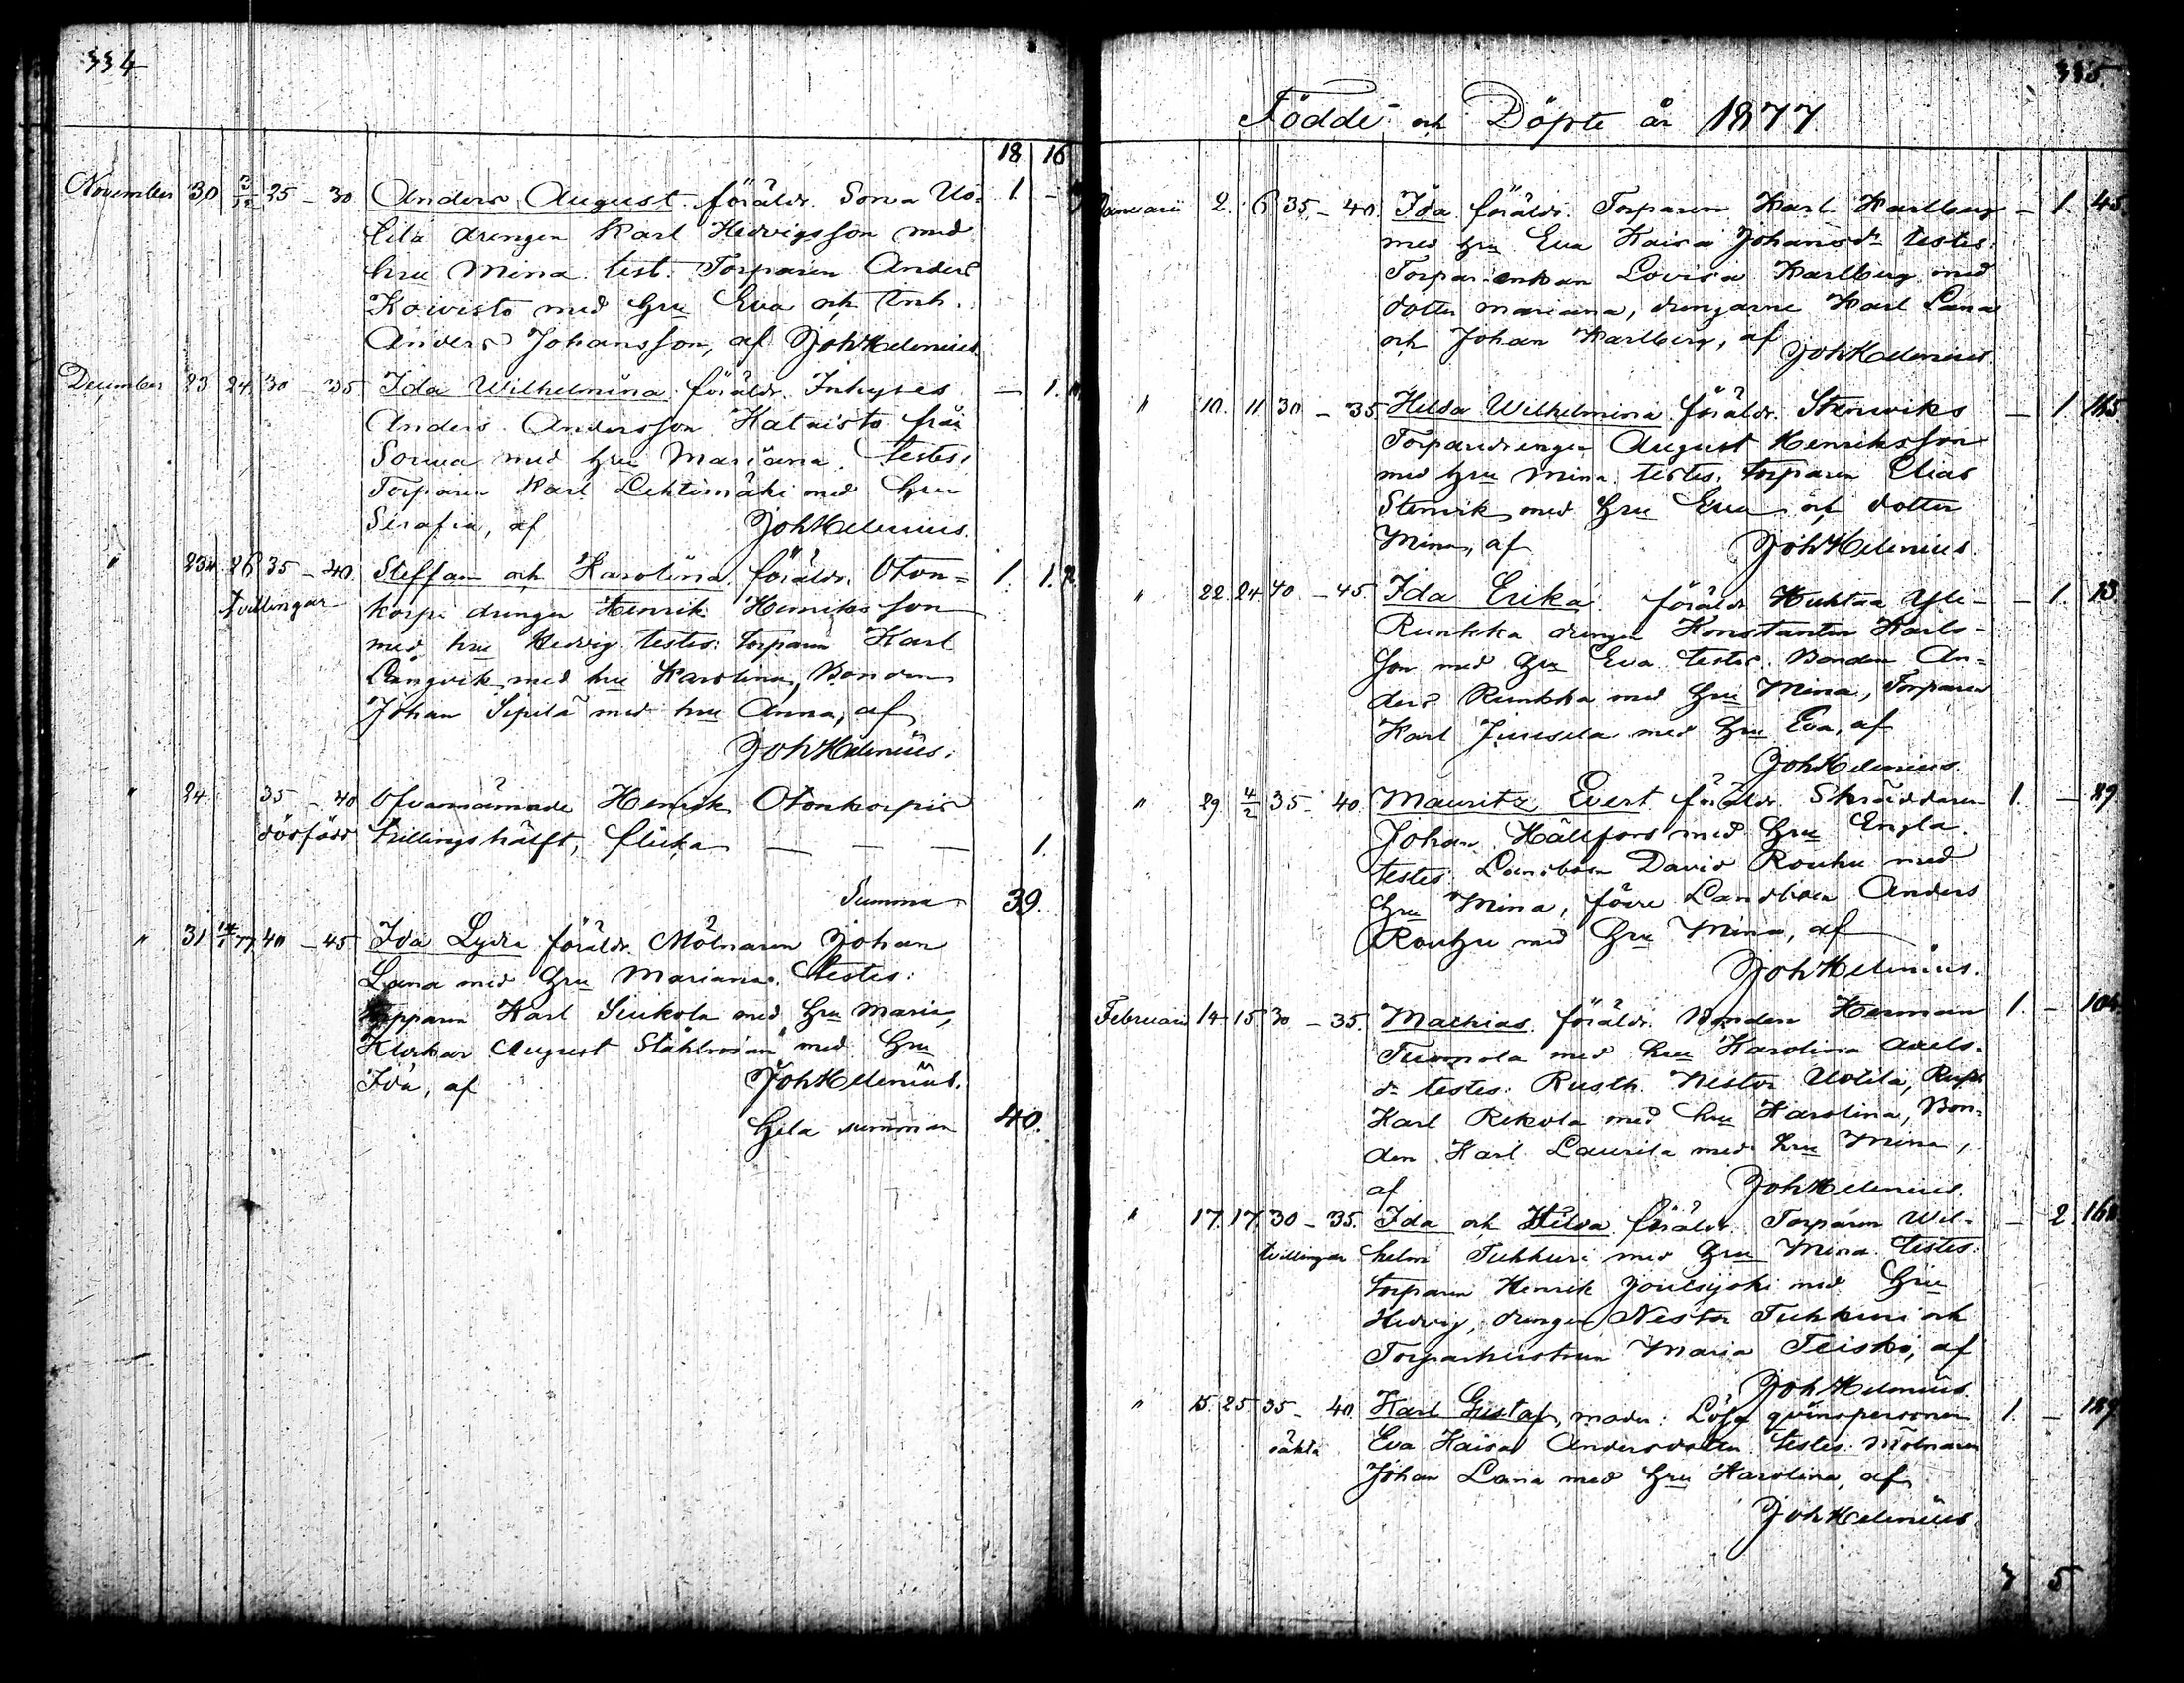 334
18 16
November 30 3/12 25 - 30 Anders August föräldr. Sorva Uo- 1. -
tila drengen Karl Hedvigsson med
hru Mina test. Torparen Anders
Koivisto med hru Eva och Inh.
Anders Johansson, af JohHelenius.
December 23 24 30 - 35 Ida Wilhelmina föräldr. Inhyses - 1.
Anders Andersson Kataisto från
Sorva med hru Mariana. testes:
Torparen Karl Lehtimäki med hru
Serafia, af JohHelenius.
" 26 35 - 40. Steffan och Karolina föräldr. Oton= 1. 1.
tvillingar korpi drengen Henrik Henriksson
med hru Hedvig testes: torparen Karl
Långvik med hru Karolina, Bonden
Johan Sipilä med hru Anna, af
JohHelenius.
" 24 35 - 40 Ofvannämnde Henrik Otonkorpis
dödfödd tvillingshälft, flicka - - - 1.
Summa 39.
" 31. 14/1 77. 40 - 45 Ida Lydia föräldr. Mölnaren Johan
Lana med hru Mariana. testes:
Torparen Karl Seukola med hru Maria,
Klockar August Ståhlrosan med hru
Ida, af JohHelenius.
Hela summan 40.
335.
Födde och Döpte år 1877
Januarii 2. 6 35. - 40. Ida föräldr. Torparen Karl Karlberg - 1. 45.
med hru Eva Kaisa Johansdr testes:
Torparenkan Lovisa Karlberg med
dotter Mariana, drengarne Karl Lana
och Johan Karlberg, af JohHelenius.
" 10. 11. 30 - 35. Hilda Wilhelmina föräldr. Stenviks - 1 165
Torparedrengen August Henriksson
med hru Mina. testes. torparen Elias
Stenvik med hru Eva och dotter
Mina, af JohHelenius.
" 22. 24. 40. - 45. Ida Erika. föräldr Huhtaa Yli- - 1. 13.
Runkka drengen Konstantin Karls-
son med hru Eva testes. Bonden An=
ders Runkka med hru Mina, Torparen
Karl Juusela med hru Eva, af
JohHelenius.
" 29. 4/2 35 - 40. Mauritz Evert föräldr. Skräddaren 1. - 29.
Johan Hällfors med hru Engla.
testes. Landboen David Rouhu med
hru Mina, förre Landboen Anders
Rouhu med hru Mina, af
JohHelenius.
Februarii 14. 15 30 - 35. Mathias föräldr. Bonden Herman 1. - 104.
Tuompola med hru Karolina Axels-
dr testes: Rusth. Nestor Uotila, Rusth
Karl Rekola med hru Karolina, Bon=
den Karl Laurila med hru Mina,
af JohHelenius.
" 17. 17. 30 - 35. Ida och Hilda föräldr. Torparen Wil- - 2.
tvillingar helm Tuhkuri med hru Mina testes:
torparen Henrik Joutsijoki med hru
Hedvig, drengen Nestor Tuhkuri och
Torparhustrun Maria Teisko, af
JohHelenius
" 15. 25. 35 - 40. Karl Gustaf, moder: Lösa qvinspersonen 1. - 129
oäkta Eva Kaisa Andersdotter testes: Mölnaren
Johan Lana med hru Karolina, af
JohHelenius.
3 5